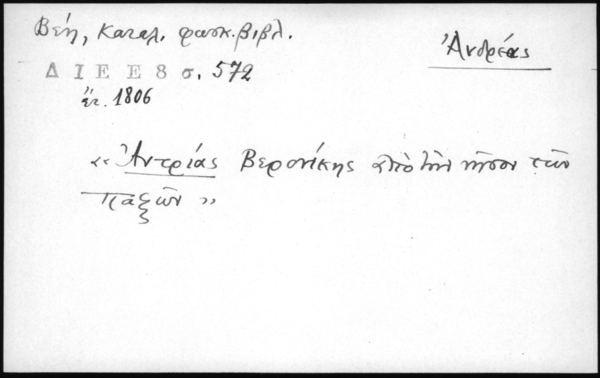 Βέη, Καταλ. φωσκ. βιβλ.
Ἀνδρέας
Δ Ι Ε Ε 8 σ. 572
ἔτ. 1806
«Ἀντρίας Βερονίκης ἀπὸ τὴν νῆσον τῶν
Παξῶν»